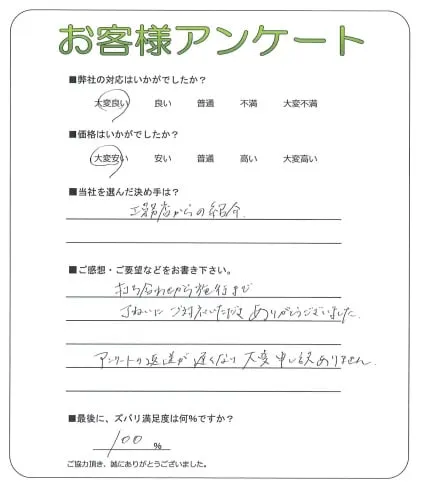 お客様アンケート
■弊社の対応はいかがでしたか?
大変良い 良い 普通 不満 大変不満
■価格はいかがでしたか?
大変安い 安い 普通 高い 大変高い
■当社を選んだ決め手は?
工務店からの紹介
■ご感想・ご要望などをお書き下さい。
打ち合わせから施行まで
丁ねいにご対応いただき ありがとうございました。
アンケートの返送が遅くなり 大変申し訳ありません。
■最後に、ズバリ満足度は何%ですか?
100 %
ご協力頂き、誠にありがとうございました。